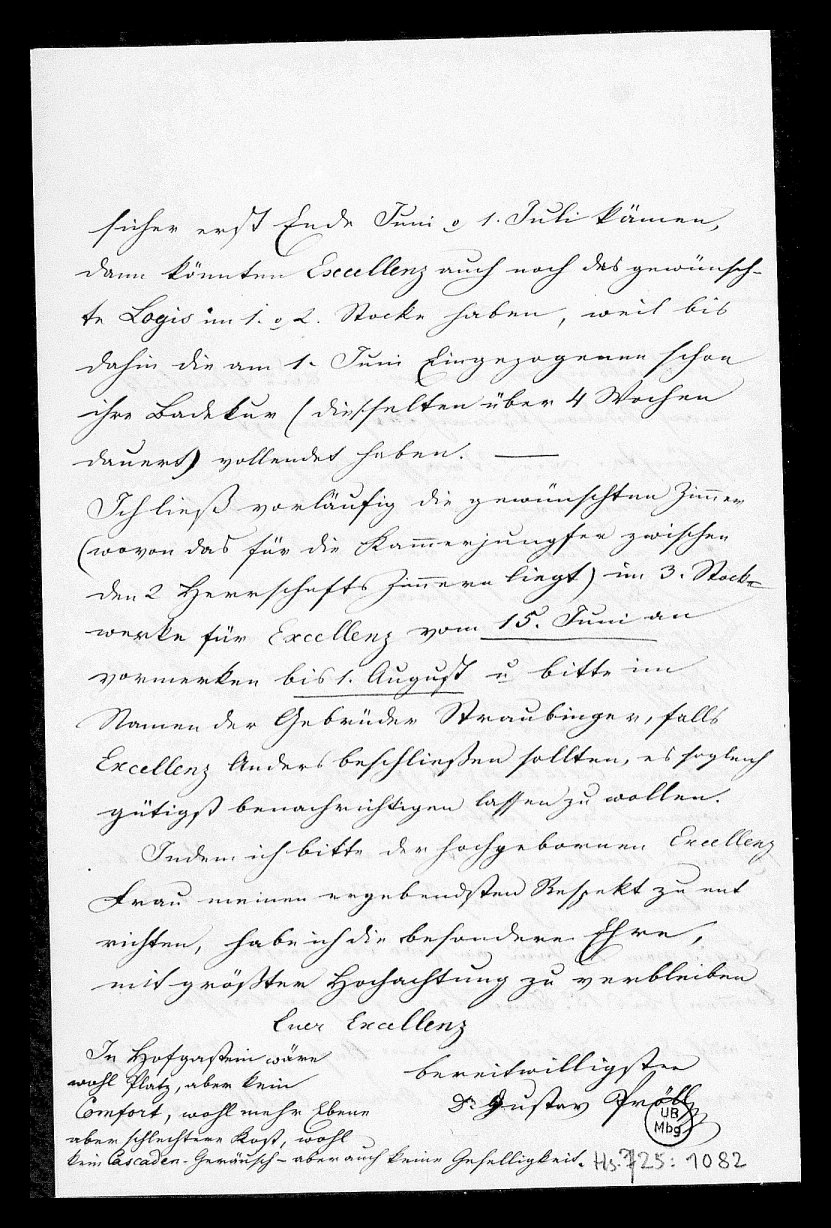 sicher erst Ende Juni o 1. Juli kämen,
dann könnten Excellenz auch noch das gewünsch-
te Logis im 1. o 2. Stocke haben, weil bis
dahin die am 1. Juni Eingezogenen schon
ihre Badekur (die selten über 4 Wochen
dauert) vollendet haben. —
Ich ließ vorläufig die gewünschten Zimmer
(wovon das für die Kammerjungfer zwischen
den 2 Herrschafts Zimmern liegt) im 3. Stock-
werke für Excellenz vom 15. Juni an
vormerken bis 1. August u bitte im
Namen der Gebrüder Straubinger, falls
Excellenz Anders beschließen sollten, es sogleich
gütigst benachrichtigen lassen zu wollen.
Indem ich bitte der hochgebornen Excellenz
Frau meinen ergebendsten Respekt zu ent
richten, habe ich die besondere Ehre,
mit größter Hochachtung zu verbleiben
Euer Excellenz
bereitwilligster
Dr. Gustav Pröll
In Hofgastein wäre
wohl Platz, aber kein
Comfort, wohl mehr Ebene
aber schlechtere Kost, wohl
kein Cascaden-Geräusch – aber auch keine Geselligkeit.
UB
Mbg
Hs. 725: 1082